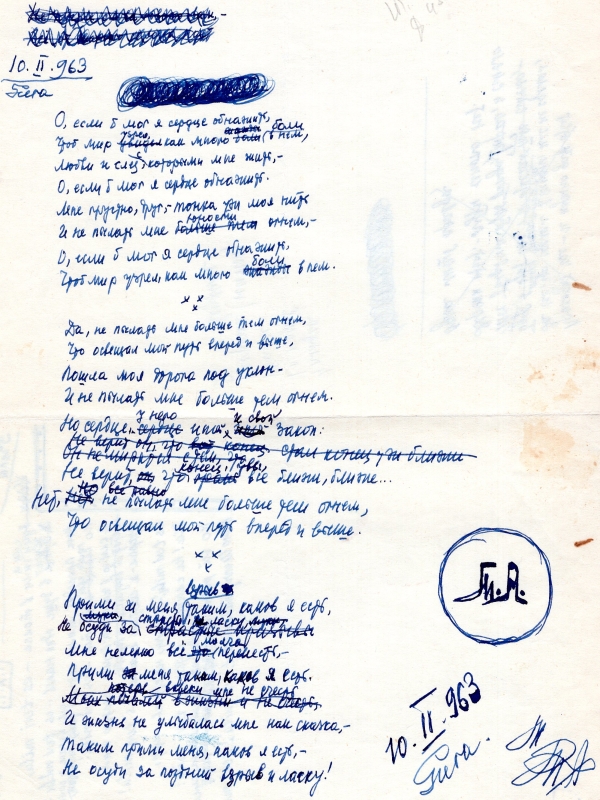 10.II.963
Рига
О, если б мог я сердце обнажить,
Чтоб мир узрел, как много боли в нём,
Любви и слез, которыми мне жить,-
О, если б мог я сердце обнажить.
Мне трудно, друг,- тонка уж моя нить
И не пылать мне юности огнем,-
О, если б мог я сердце обнажить,
Чтоб мир узрел, как много боли в нем.
x x
x
Да, не пылать мне больше тем огнем,
Что освещал мой путь вперед и выше,
Пошла моя дорога под уклон-
И не пылать мне больше тем огнем.
Но сердце.. у него и свой закон:
Не верит, что конец, увы, все ближе, ближе...
Нет, не пылать мне больше тем огнем,
Что освещал мой путь вперед и выше.
x x
x
Прими ж меня таким, каков я есть,
Не осуди за взрыв
Мне нелегко всё молча перенесть,-
Прими меня таким, каков я есть.
потерь мне не счесть
И жизнь не улыбалась мне как сказка,-
Таким прими меня, каков я есть,-
Не осуди за поздний взрыв и ласку!
Т.А.
10.II.963
Рига.